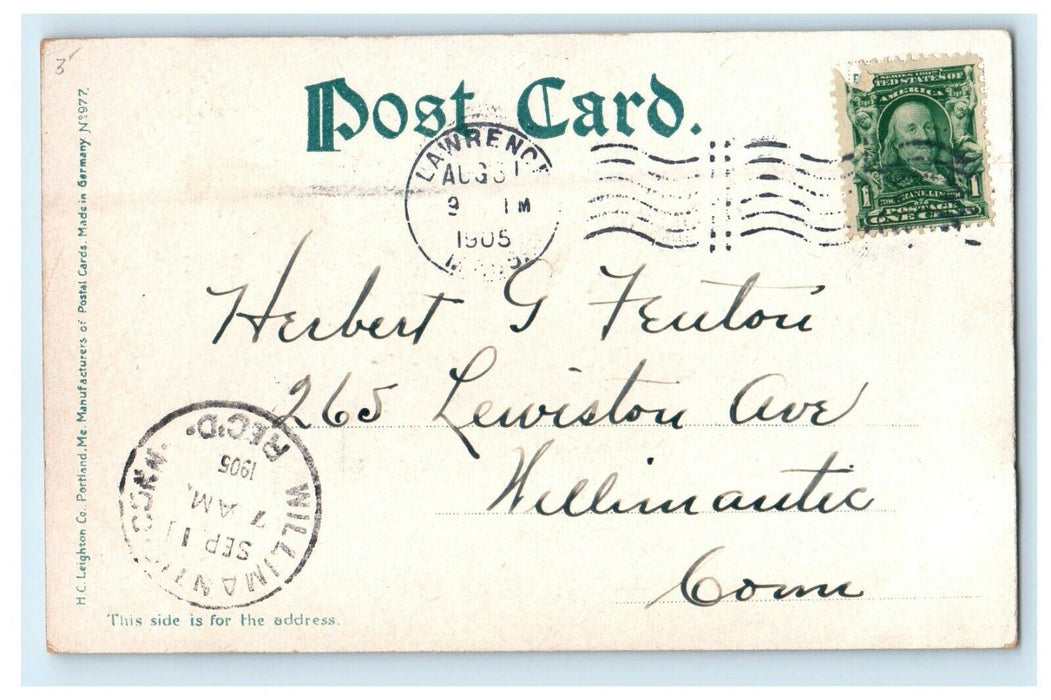 3
Post Card.
SERIES 1902
UNITED STATES OF
AMERICA
1 1
POSTAGE
ONE CENT
LAWRENCE
AUG 31
9
1905
Herbert G Fenton
265 Lewiston Ave
Willimantic
Conn
WILLIMANTIC CONN.
SEP 1
7 AM.
1905
REC'D.
This side is for the address.
H.C. Leighton Co. Portland, Me. Manufacturers of Postal Cards. Made in Germany No 977.